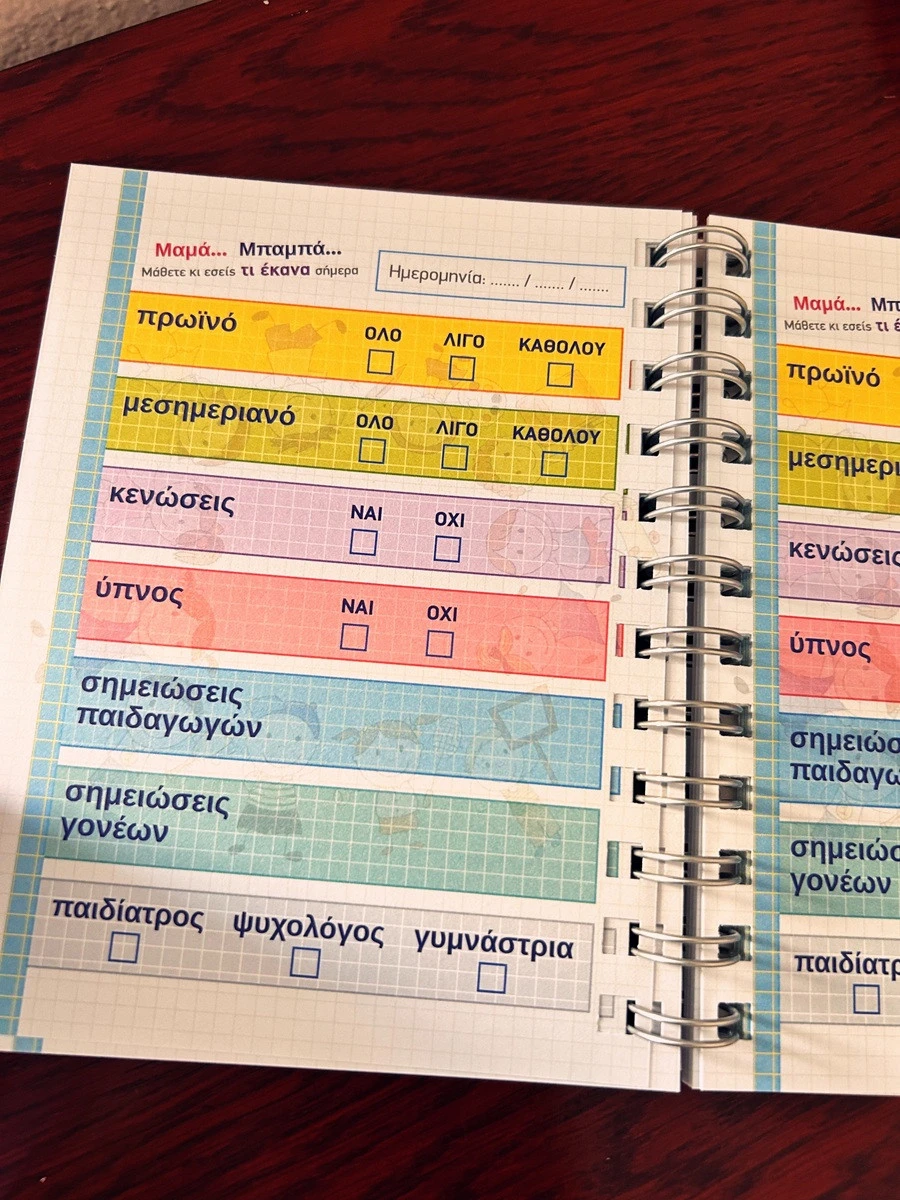 Μαμά... Μπαμπά...
Μάθετε κι εσείς τι έκανα σήμερα
Ημερομηνία: ....... / ....... / .......
πρωϊνό
ΟΛΟ ΛΙΓΟ ΚΑΘΟΛΟΥ
μεσημεριανό
ΟΛΟ ΛΙΓΟ ΚΑΘΟΛΟΥ
κενώσεις
ΝΑΙ ΟΧΙ
ύπνος
ΝΑΙ ΟΧΙ
σημειώσεις
παιδαγωγών
σημειώσεις
γονέων
παιδίατρος ψυχολόγος γυμνάστρια
Μαμά...
Μάθετε κι εσείς τι
πρωϊνό
μεσημερι
κενώσεις
ύπνος
σημειώσ
παιδαγω
σημειώσ
γονέων
παιδίατρ